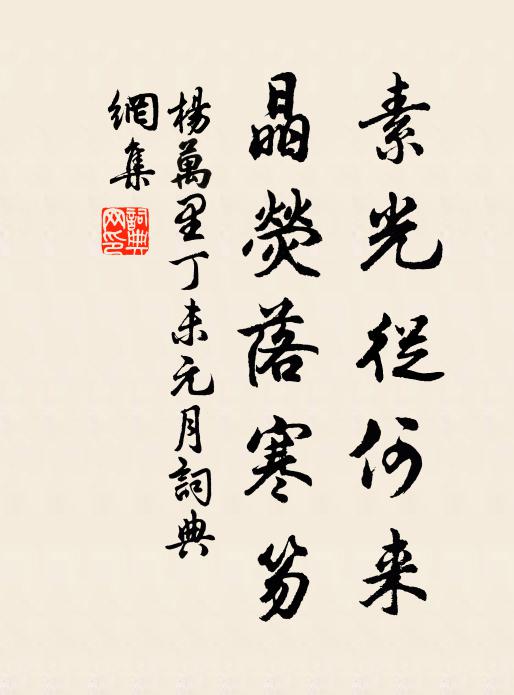 素光從何来
晶熒落寒笏
楊萬里丁未元月詞典
網集
詞典网印